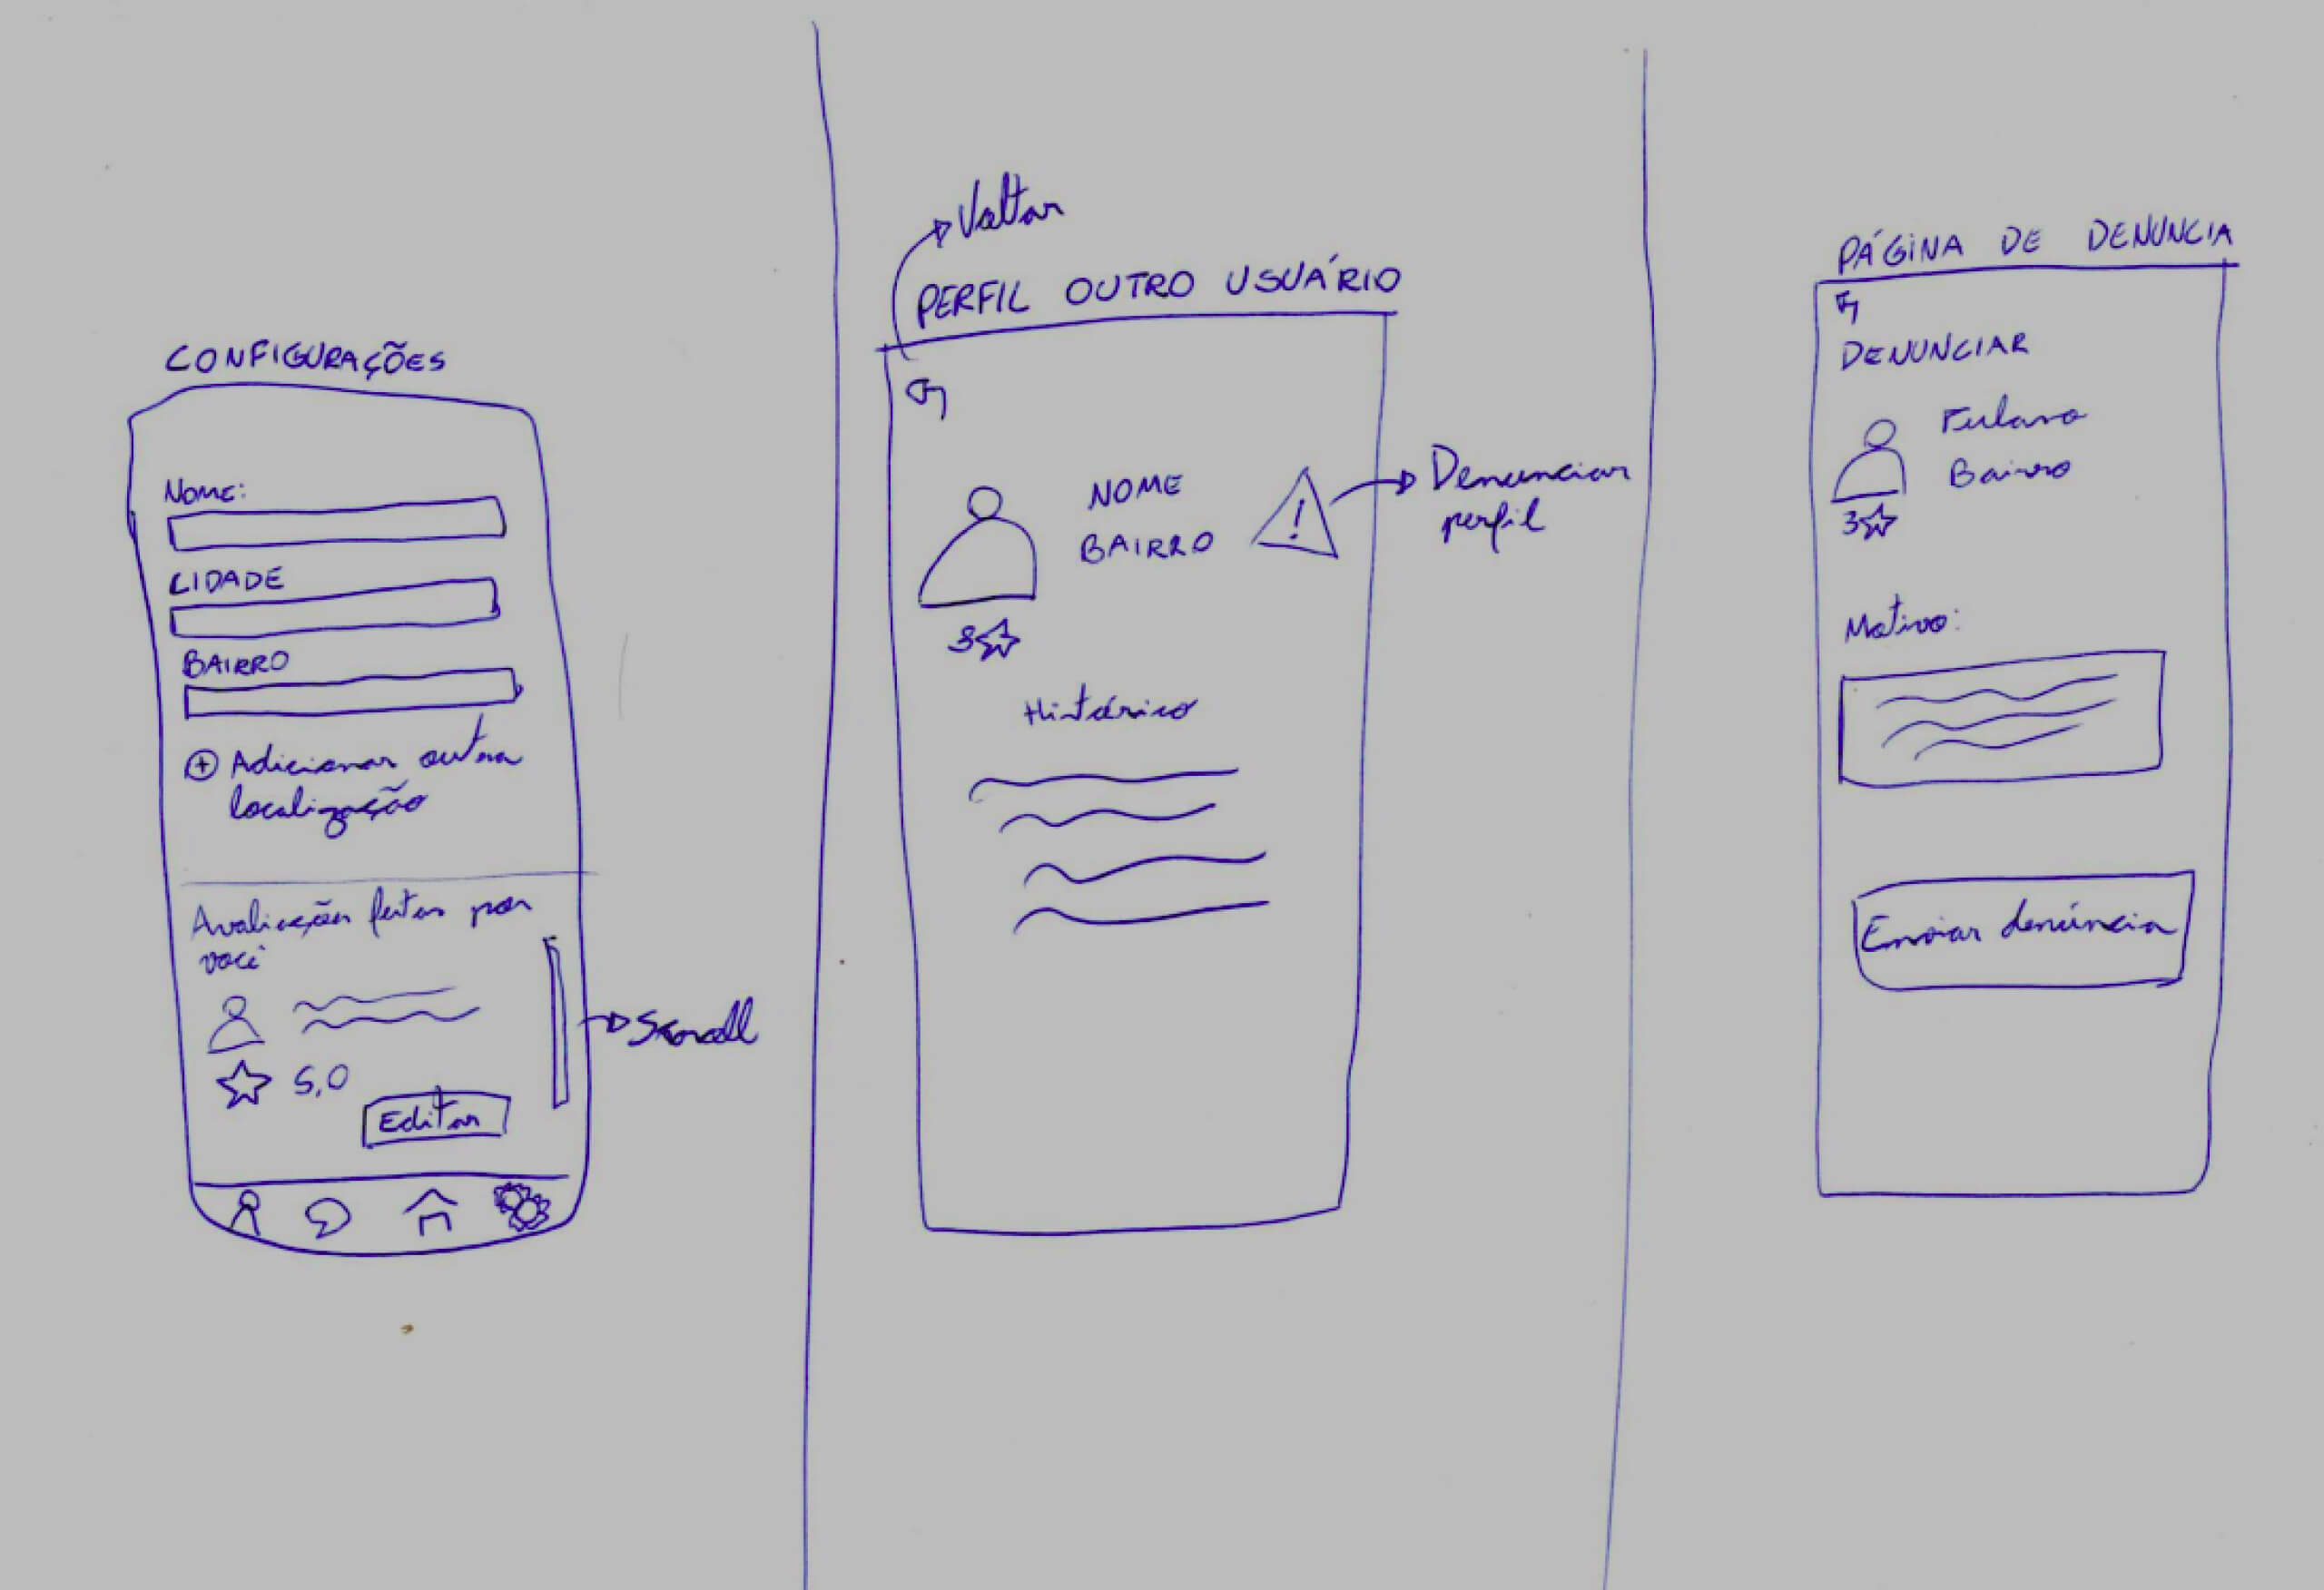 CONFIGURAÇÕES
NOME:
CIDADE
BAIRRO
+ Adicionar outra
localização
Avaliações feitas por
você
5,0
Editar
Scroll
Voltar
PERFIL OUTRO USUÁRIO
NOME
BAIRRO
!
Denunciar
perfil
3
Histórico
PÁGINA DE DENUNCIA
DENUNCIAR
Fulano
Bairro
3
Motivo:
Enviar denúncia